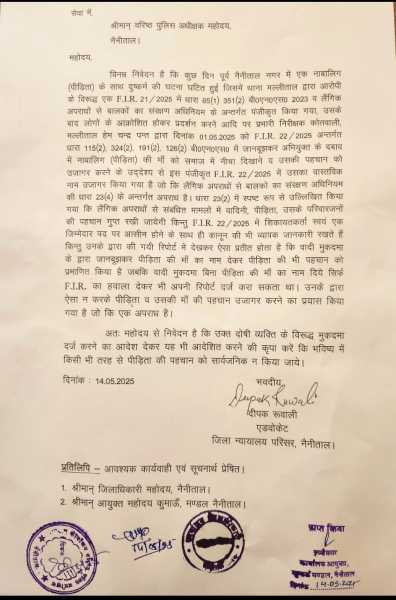 सेवा में,
श्रीमान् वरिष्ठ पुलिस अधीक्षक महोदय,
नैनीताल।
महोदय,
विनम्र निवेदन है कि कुछ दिन पूर्व नैनीताल नगर में एक नाबालिग
(पीड़िता) के साथ दुष्कर्म की घटना घटित हुई जिसमें थाना मल्लीताल द्वारा आरोपी
के विरूद्ध एक F.I.R. 21/2025 में धारा 65(1) 351(2) बी0एन0एस0 2023 व लैंगिक
अपराधों से बालकों का संरक्षण अधिनियम के अन्तर्गत पंजीकृत किया गया, उसके
बाद लोगों के आक्रोशित होकर प्रदर्शन करने आदि पर प्रभारी निरीक्षक कोतवाली,
मल्लीताल हेम चन्द्र पन्त द्वारा दिनांक 01.05.2025 को F.I.R. 22/2025 अन्तर्गत
धारा 115(2), 324(2), 191(2), 126(2) बी0एन0एस0 में जानबूझकर अभियुक्त के दबाव
में नाबालिग (पीड़िता) की माँ को समाज में नीचा दिखाने व उसकी पहचान को
उजागर करने के उद्देश्य से इस पंजीकृत F.I.R. 22/2025 में उसका वास्तविक
नाम उजागर किया गया है जो कि लैंगिक अपराधों से बालकों का संरक्षण अधिनियम
की धारा 23(4) के अन्तर्गत अपराध है। धारा 23(2) में स्पष्ट रूप से उल्लिखित किया
गया कि लैंगिक अपराधों से संबंधित मामलों में वादिनी, पीड़िता, उसके परिवारजनों
की पहचान गुप्त रखी जायेगी किन्तु F.I.R. 22/2025 में शिकायतकर्ता स्वयं एक
जिम्मेदार पद पर आसीन होने के साथ ही कानून की भी व्यापक जानकारी रखते हैं
किन्तु उनके द्वारा की गयी रिपोर्ट में देखकर ऐसा प्रतीत होता है कि वादी मुकदमा
के द्वारा जानबूझकर पीड़िता की माँ का नाम देकर पीड़िता की भी पहचान को
प्रमाणित किया है जबकि वादी मुकदमा बिना पीड़िता की माँ का नाम दिये सिर्फ
F.I.R. का हवाला देकर भी अपनी रिपोर्ट दर्ज करा सकता था। उनके द्वारा
ऐसा न करके पीड़िता व उसकी माँ की पहचान उजागर करने का प्रयास किया
गया है जो कि एक अपराध है।
अतः महोदय से निवेदन है कि उक्त दोषी व्यक्ति के विरूद्ध मुकदमा
दर्ज करने का आदेश देकर यह भी आदेशित करने की कृपा करें कि भविष्य में
किसी भी तरह से पीड़िता की पहचान को सार्वजनिक न किया जाये।
दिनांक : 14.05.2025
भवदीय,
Deepak Ruwali
दीपक रूवाली
एडवोकेट
जिला न्यायालय परिसर, नैनीताल।
प्रतिलिपि – आवश्यक कार्यवाही एवं सूचनार्थ प्रेषित।
1. श्रीमान् जिलाधिकारी महोदय, नैनीताल।
2. श्रीमान् आयुक्त महोदय कुमाऊँ, मण्डल नैनीताल।
प्राप्त किया
कार्यालय आयुक्त,
कुमाऊँ मण्डल, नैनीताल
दिनांक 14-05-2025